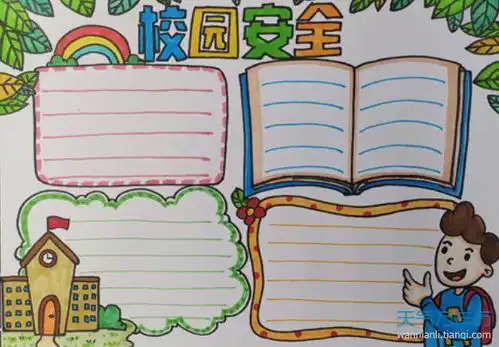 校园安全
wannianli.tianqi.com